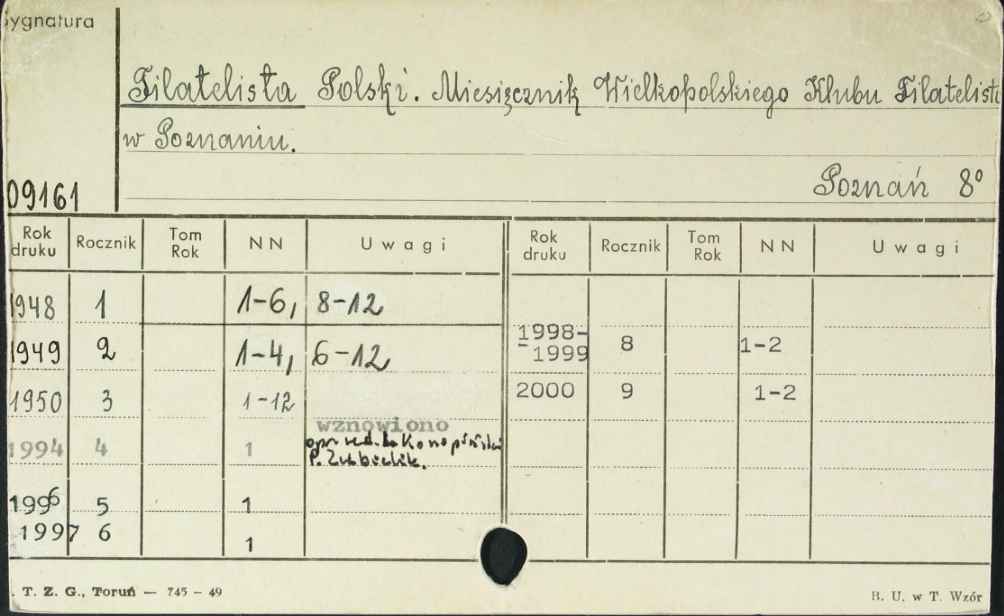 Sygnatura
Filatelista Polski. Miesięcznik Wielkopolskiego Klubu Filatelist
w Poznaniu.
Poznań 8°
09161
Rok druku Rocznik Tom Rok NN Uwagi Rok druku Rocznik Tom Rok NN Uwagi
1948 1 1-6, 8-12
1949 2 1-4, 6-12
1950 3 1-12
wznowiono
1994 4 1
P.
1996 5 1
1997 6 1
1998-
-1999 8 1-2
2000 9 1-2
. T. Z. G., Toruń — 745 - 49
B. U. w T. Wzór